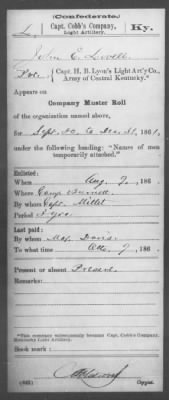 (Confederate.)
L Capt. Cobb's Company, Ky.
Light Artillery.
John C. Lovell
Pvt., Capt. H. B. Lyon's Light Art'y Co.,
Army of Central Kentucky.*
Appears on
Company Muster Roll
of the organization named above,
for Sept. 30 to Dec. 31, 1861,
under the following heading: "Names of men
temporarily attached."
Enlisted:
When Aug. 7, 186 .
Where Camp Burnett
By whom Capt.
Period 3 yrs.
Last paid:
By whom Maj. Davis
To what time 7, 186 .
Present or absent Present
Remarks:
*This company subsequently became Capt. Cobb's Company,
Kentucky Light Artillery.
Book mark:
(642)
Copyist.